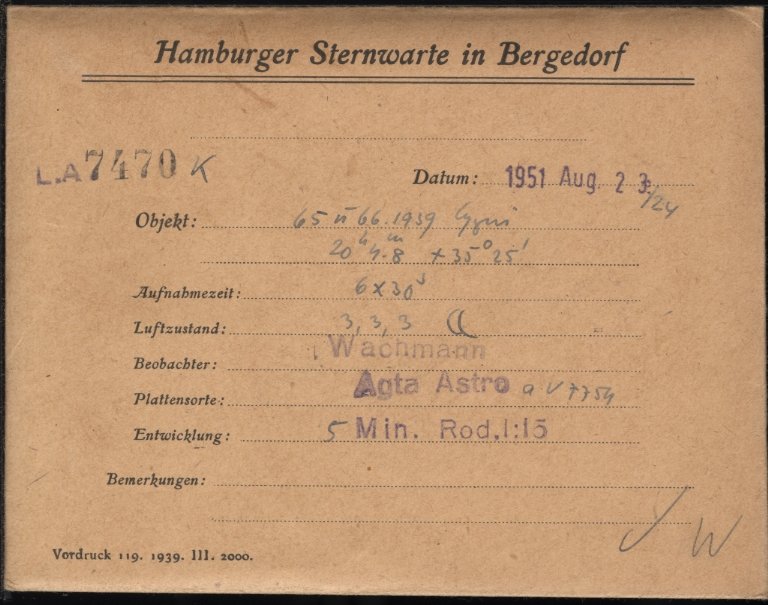 Hamburger Sternwarte in Bergedorf
L.A 7470 K
Datum: 1951 Aug. 23/24
Objekt: 65 u 66.1939 Cygni
20h 4.m8 +35° 25'
Aufnahmezeit: 6 x 30s
Luftzustand: 3, 3, 3
Beobachter: Wachmann
Plattensorte: Agfa Astro a V 7754
Entwicklung: 5 Min. Rod. 1:15
Bemerkungen:
W
Vordruck 119. 1939. III. 2000.